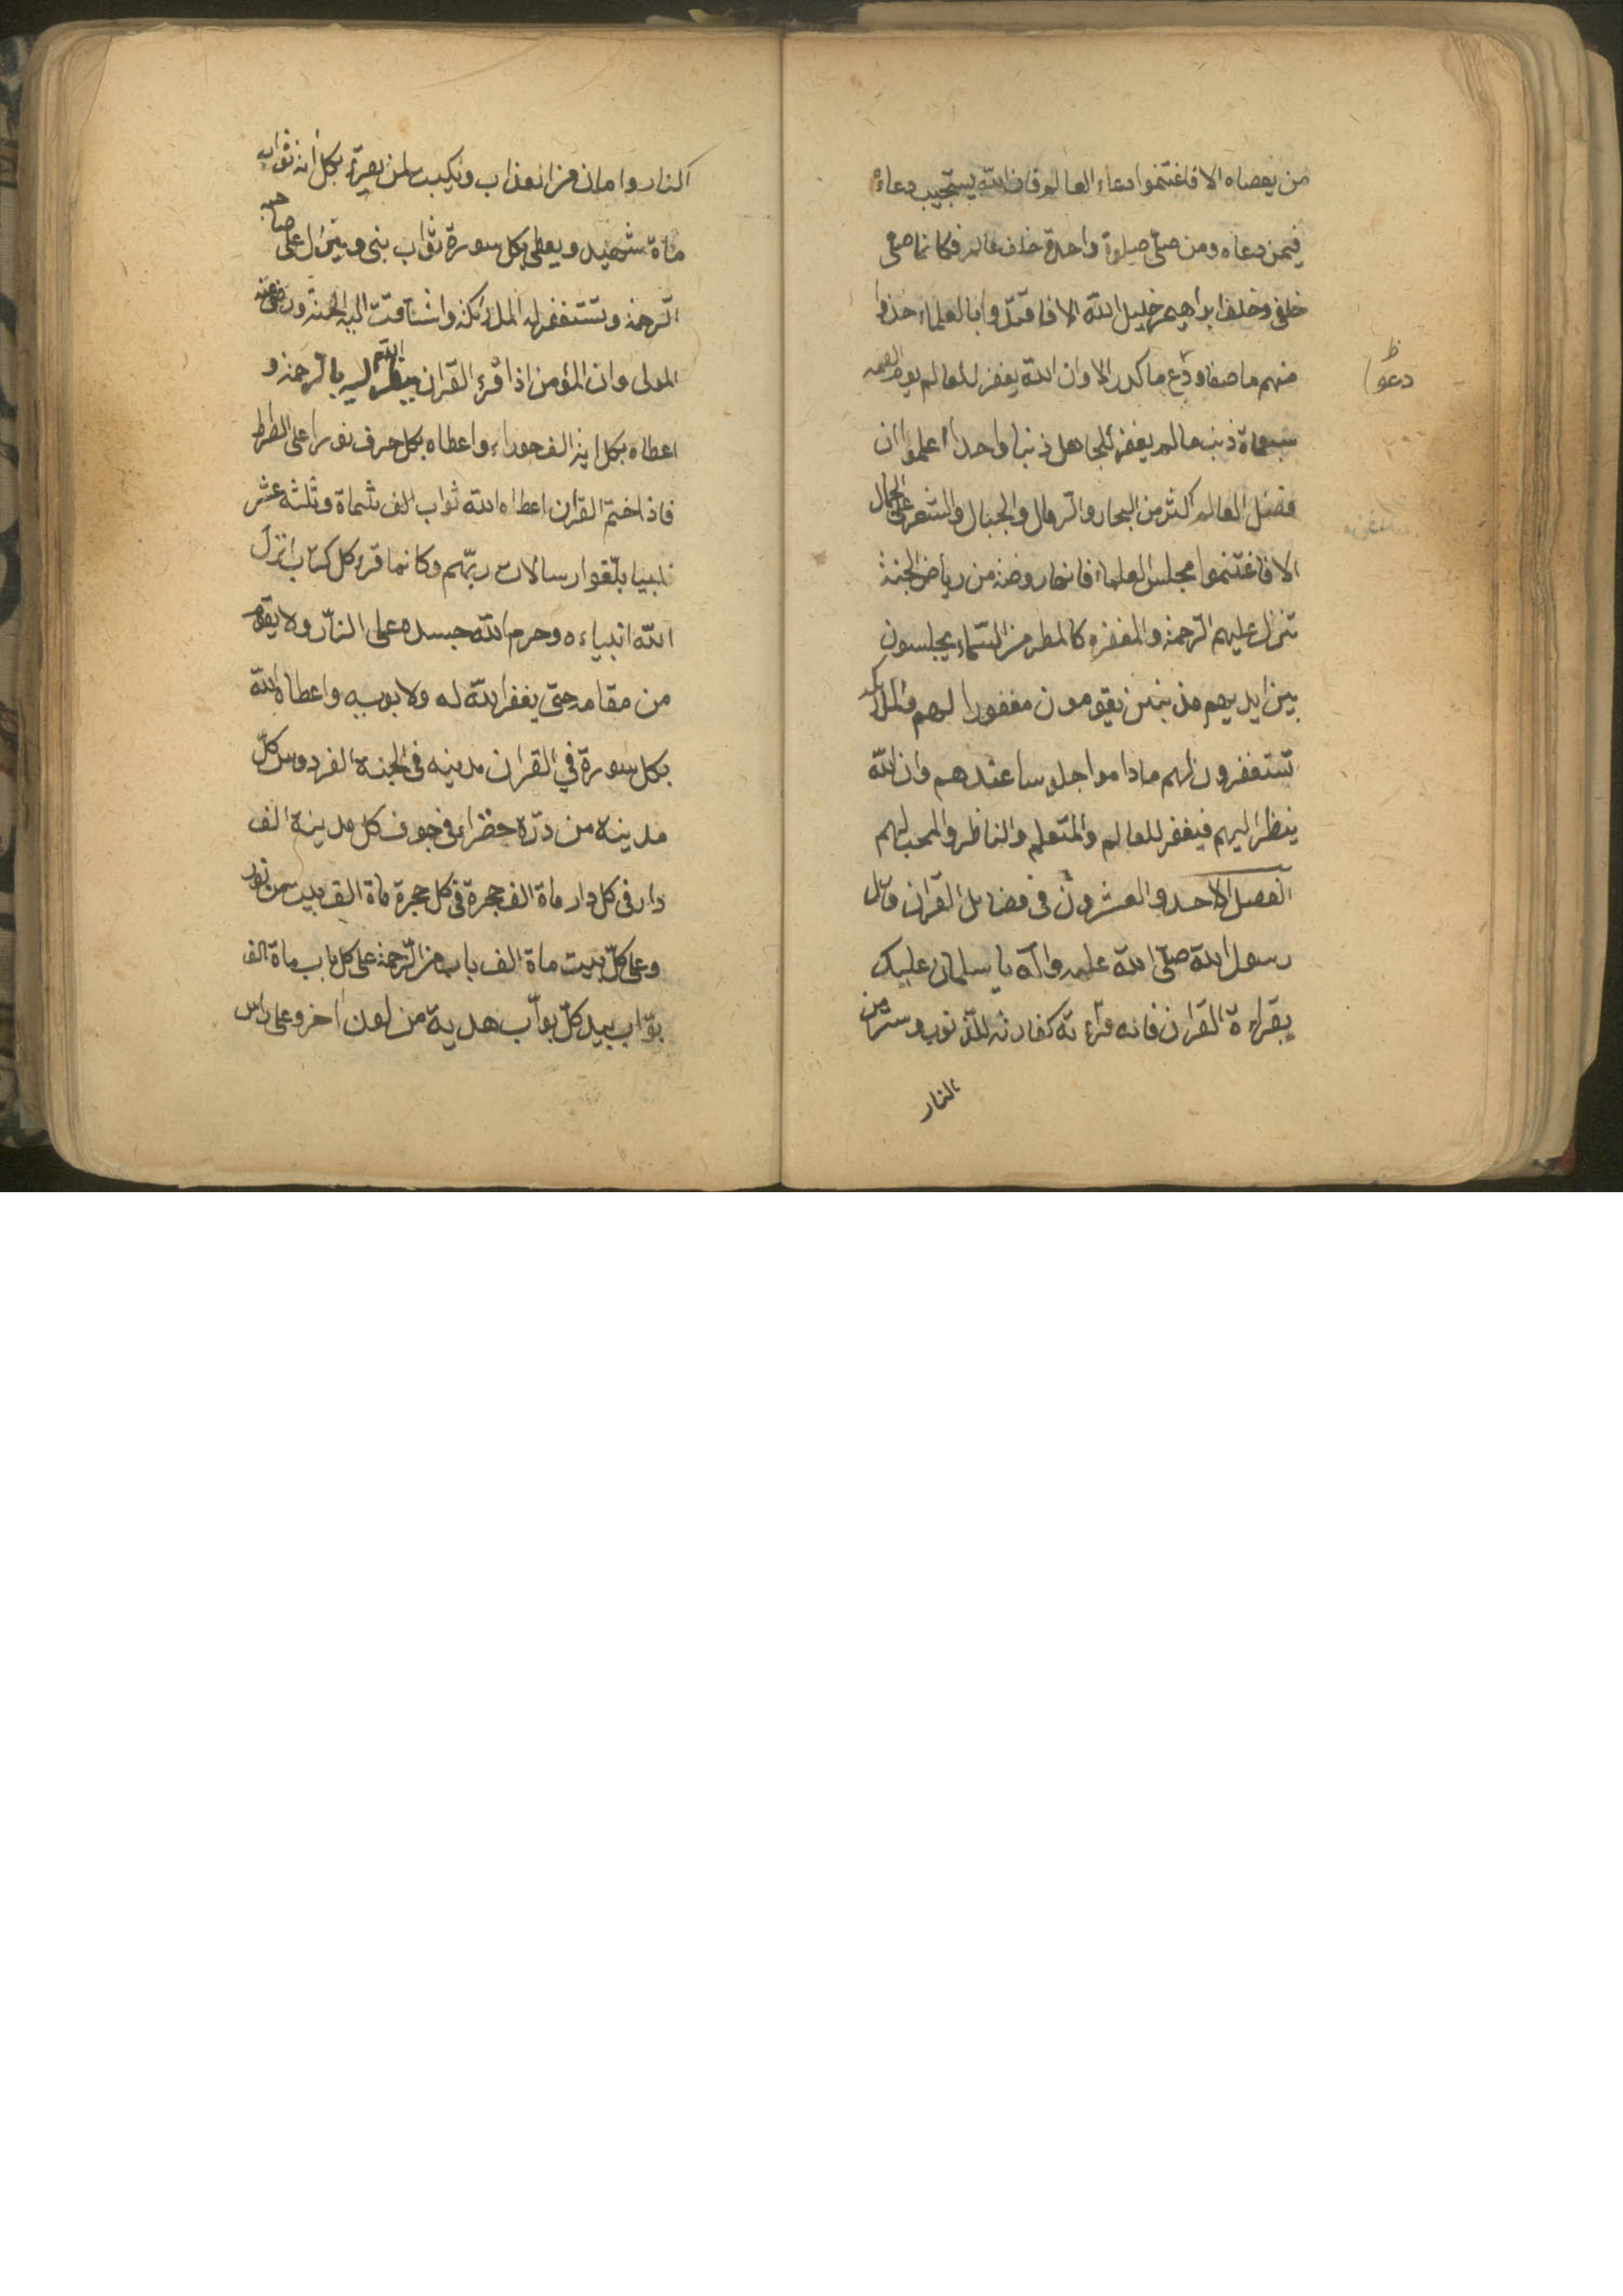 من يعصاه الا فاغتنموا دعاء العالم فان الله يستجيب دعاءه
فيمن دعاه ومن صلى صلوة واحدة خلف عالم فكانما صلى
خلفى وخلف ابراهيم خليل الله الا فاقتدوا بالعلماء خذوا
منهم ما صفا ودع ما كدر الا وان الله يغفر للعالم يوم القيمة
دعوا
سبعماة ذنب ما لم يغفر للجاهل ذنبا واحدا اعلموا ان
فضل العالم اكثر من البحار والرمال والجبال والشعر على الجمال
الا فاغتنموا مجلس العلماء فانها روضة من رياض الجنة
تنزل عليهم الرحمة والمغفرة كالمطر من السماء يجلسون
بين ايديهم مذنبين يقومون مغفورا لهم والملائكة
تستغفرون لهم ما داموا جلوسا عندهم وان الله
ينظر اليهم فيغفر للعالم والمتعلم والناظر والمحب لهم
الفصل الاحد والعشرون في فضائل القرآن قال
رسول الله صلى الله عليه وآله يا سلمان عليك
بقراءة القرآن فانه قراءته كفارته للذنوب وستر من
النار
النار وامان من العذاب ويكتب لمن يقرء بكل آية ثواب
ماة شهيد ويعطى بكل سورة ثواب نبى وينزل على صاحبه
الرحمة وتستغفر له الملائكة واشتاقت اليه الجنة ورضى عنه
المولى وان المؤمن اذا قرء القرآن ينظر الله اليه بالرحمة و
اعطاه بكل اية الف حوراء واعطاه بكل حرف نورا على الصراط
فاذا ختم القرآن اعطاه الله ثواب الف ثلثماة وثلثة عشر
نبيا بلغوا رسالات ربهم وكانما قرء كل كتاب انزل
الله انبياءه وحرم الله جسده على النار ولا يقوم
من مقامه حتى يغفر الله له ولابويه واعطاه الله
بكل سورة في القرآن مدينه في الجنة الفردوس كل
مدينه من درة خضراء في جوف كل مدينة الف
دار في كل دار ماة الف حجرة في كل حجرة ماة الف بيت من نور
وعلى كل بيت ماة الف باب من الرحمة على كل باب ماة الف
بواب بيد كل بواب هدية من لون اخر وعلى راس